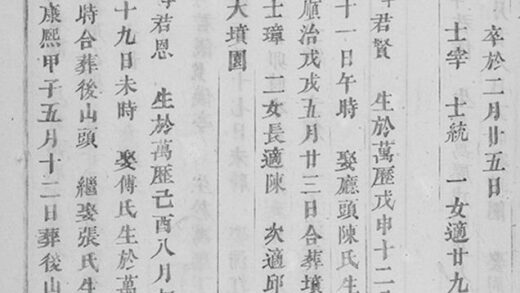 卒於二月廿五日
士宰 士統 一女適廿九
君賢 生於萬歷戊申十二
十一日午時 娶廳頭陳氏生
順治戊戌五月廿三日合葬墳
士璋 二女長適陳 次適邱
大墳園
君恩 生於萬歷己酉八月
十九日未時 娶傅氏生於萬
時合葬後山頭 繼娶張氏生
康熙甲子五月十二日葬後山